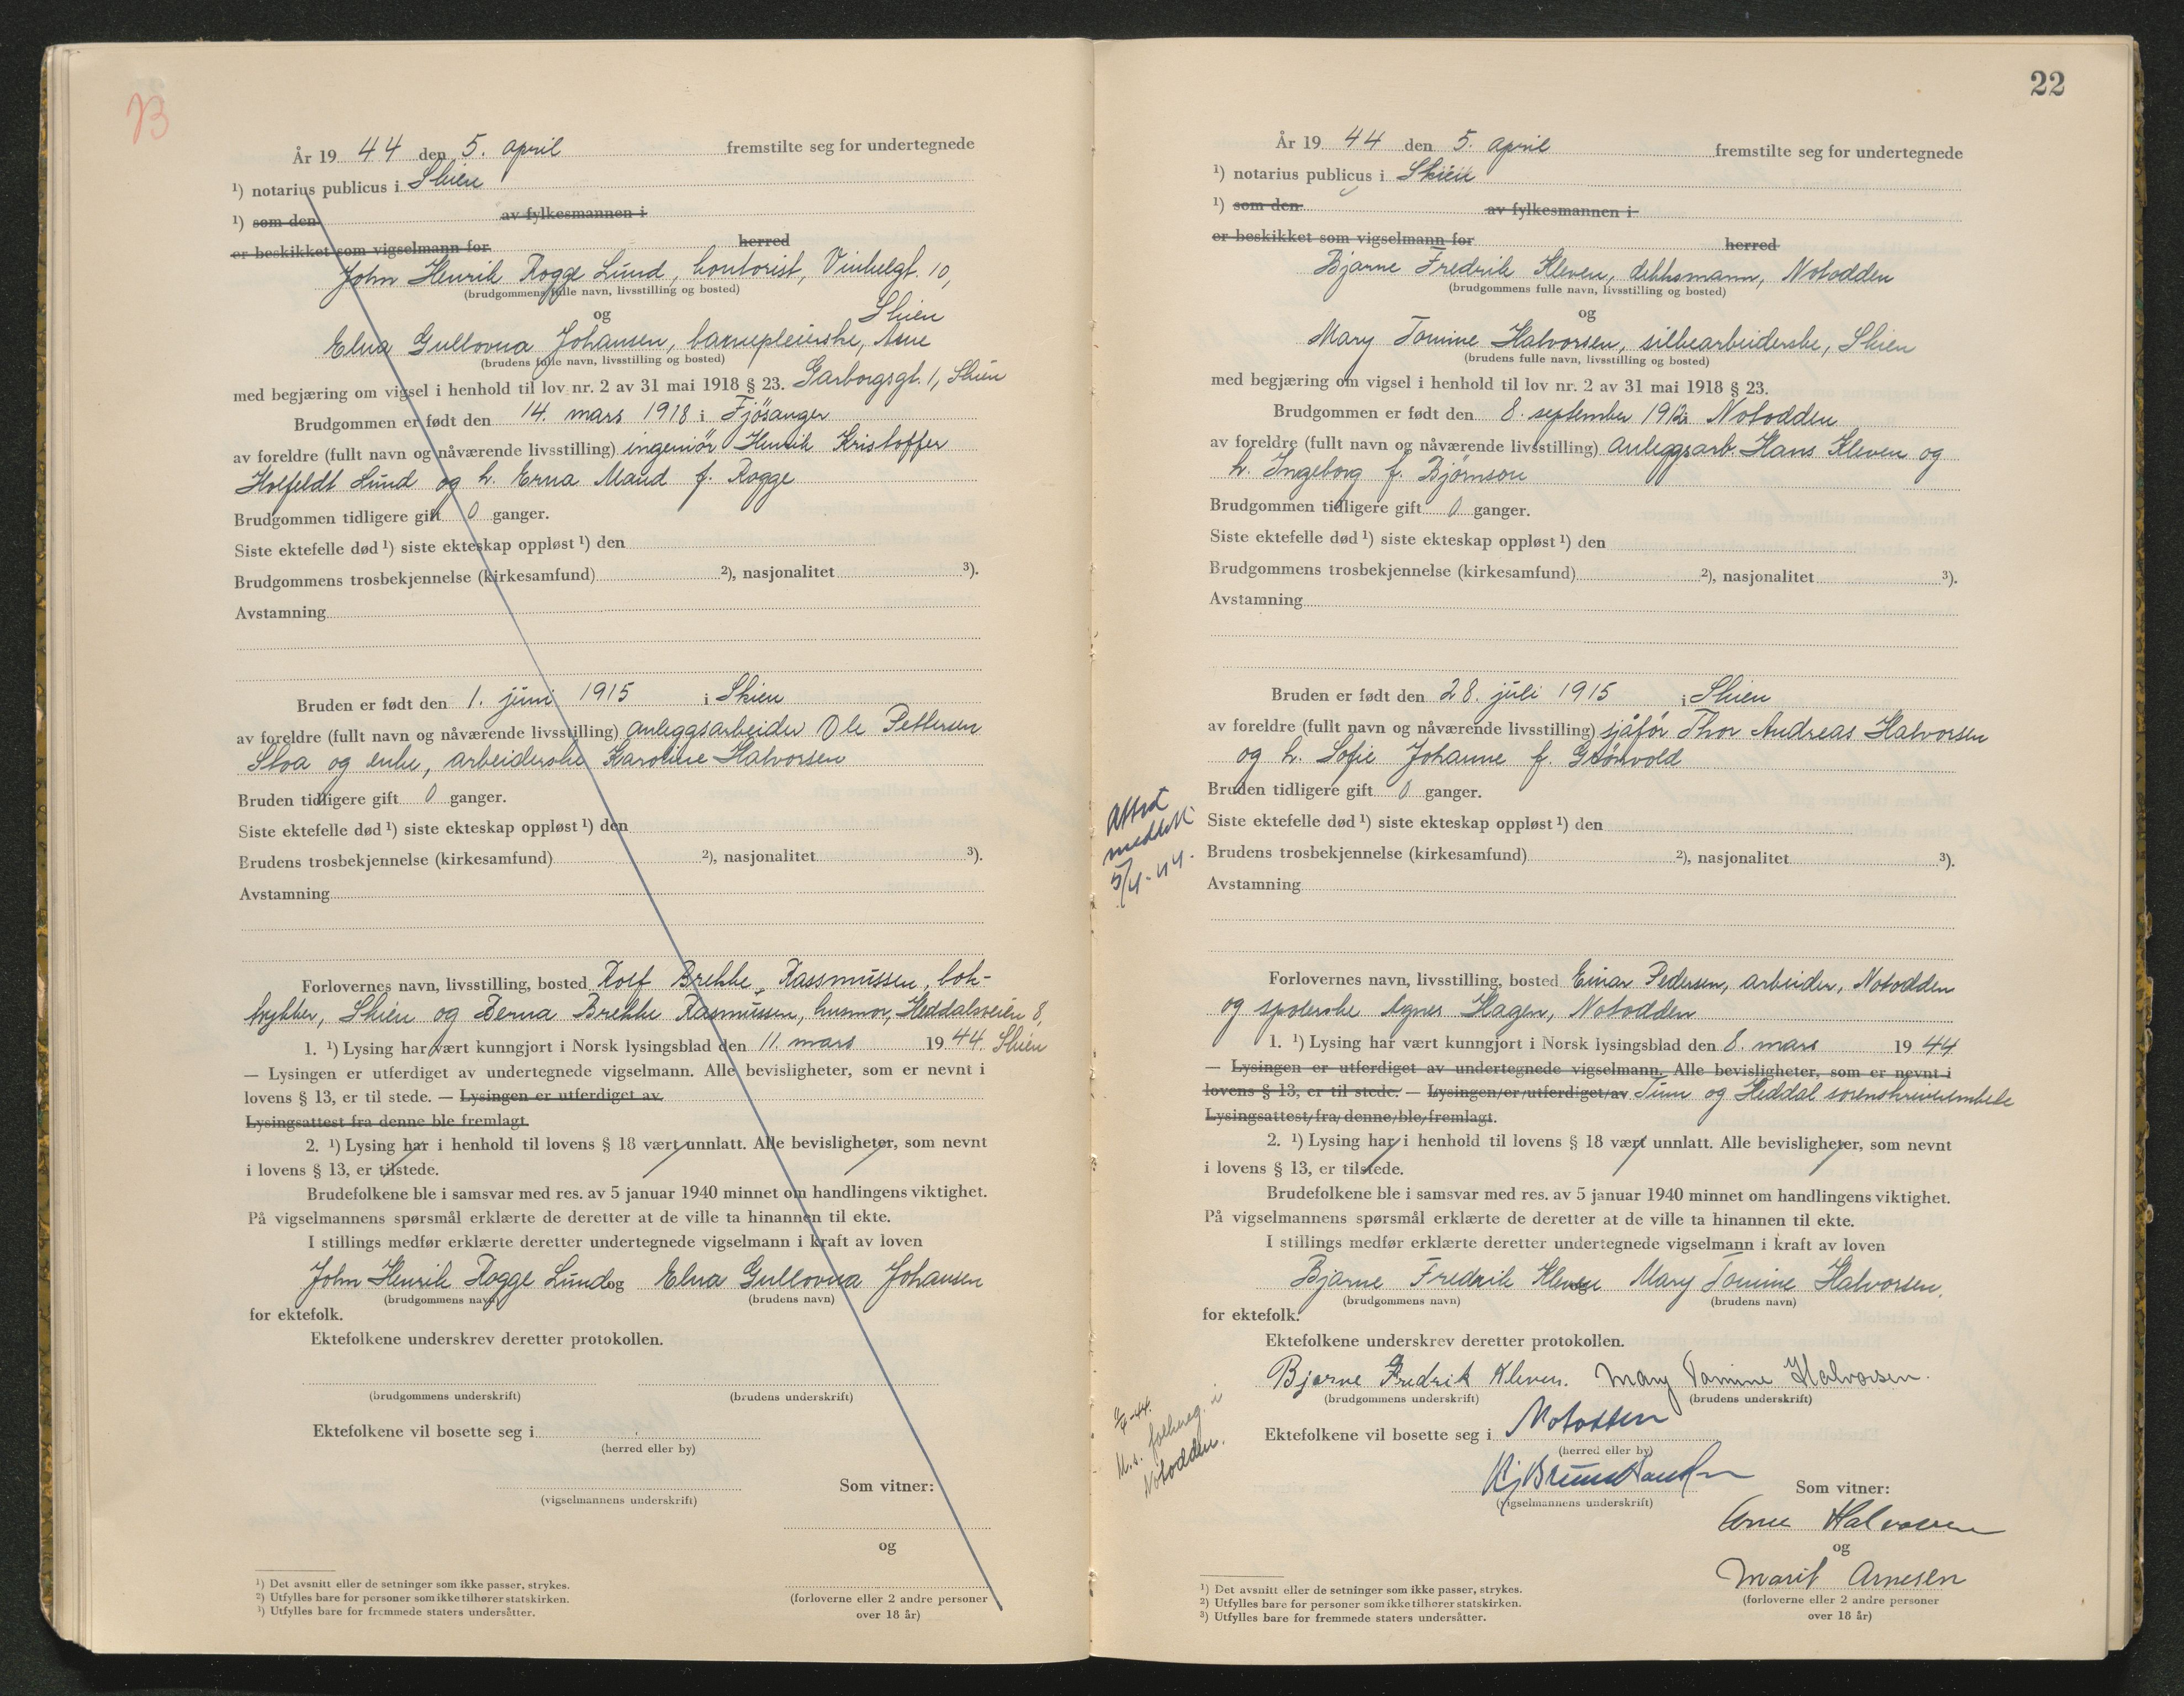 År 19 44 den 5. april fremstilte seg for undertegnede
¹) notarius publicus i Skien
¹) som den av fylkesmannen i
er beskikket som vigselmann for herred
John Henrik Rogge Lund, kontorist, Vinkelgt. 10,
(brudgommens fulle navn, livsstilling og bosted)
Skien
og
Elna Gullovna Johansen, barnepleierske, Arne
(brudens fulle navn, livsstilling og bosted)
med begjæring om vigsel i henhold til lov nr. 2 av 31 mai 1918 § 23. Garborgsgt. 1, Skien
Brudgommen er født den 14. mars 1918 i Fjösanger
av foreldre (fullt navn og nåværende livsstilling) ingeniör Henrik Kristoffer
Lund og h. Erna Maud f. Rogge
Brudgommen tidligere gift 0 ganger.
Siste ektefelle død ¹) siste ekteskap oppløst ¹) den
Brudgommens trosbekjennelse (kirkesamfund) ²), nasjonalitet ³).
Avstamning
Bruden er født den 1. juni 1915 i Skien
av foreldre (fullt navn og nåværende livsstilling) anleggsarbeider Ole Pettersen
Sloa og enke, arbeiderske Karoline Halvorsen
Bruden tidligere gift 0 ganger.
Siste ektefelle død ¹) siste ekteskap oppløst ¹) den
Brudens trosbekjennelse (kirkesamfund) ²), nasjonalitet ³).
Avstamning
Forlovernes navn, livsstilling, bosted Rolf Brekke Rassmussen, bok-
trykker, Skien og Berna Brekke Rasmussen, husmor, Heddalsveien 8,
1. ¹) Lysing har vært kunngjort i Norsk lysingsblad den 11. mars 19 44. Skien
— Lysingen er utferdiget av undertegnede vigselmann. Alle bevisligheter, som er nevnt i
lovens § 13, er til stede. — Lysingen er utferdiget av
Lysingsattest fra denne ble fremlagt.
2. ¹) Lysing har i henhold til lovens § 18 vært unnlatt. Alle bevisligheter, som nevnt
i lovens § 13, er tilstede.
Brudefolkene ble i samsvar med res. av 5 januar 1940 minnet om handlingens viktighet.
På vigselmannens spørsmål erklærte de deretter at de ville ta hinannen til ekte.
I stillings medfør erklærte deretter undertegnede vigselmann i kraft av loven
John Henrik Rogge Lund og Elna Gullovna Johansen
(brudgommens navn) (brudens navn)
for ektefolk.
Ektefolkene underskrev deretter protokollen.
(brudgommens underskrift) (brudens underskrift)
Ektefolkene vil bosette seg i
(herred eller by)
Som vitner:
(vigselmannens underskrift)
og
¹) Det avsnitt eller de setninger som ikke passer, strykes.
²) Utfylles bare for personer som ikke tilhører statskirken.
³) Utfylles bare for fremmede staters undersåtter.
(forloverne eller 2 andre personer
over 18 år)
22
År 19 44 den 5. april fremstilte seg for undertegnede
¹) notarius publicus i Skien
¹) som den av fylkesmannen i
er beskikket som vigselmann for herred
Bjarne Fredrik Kleven, dekksmann, Notodden
(brudgommens fulle navn, livsstilling og bosted)
og
Mary Tomine Halvorsen, silkearbeiderske, Skien
(brudens fulle navn, livsstilling og bosted)
med begjæring om vigsel i henhold til lov nr. 2 av 31 mai 1918 § 23.
Brudgommen er født den 8. september 1912 i Notodden
av foreldre (fullt navn og nåværende livsstilling) anleggsarb. Hans Kleven og
h. Ingeborg f. Bjørnson
Brudgommen tidligere gift 0 ganger.
Siste ektefelle død ¹) siste ekteskap oppløst ¹) den
Brudgommens trosbekjennelse (kirkesamfund) ²), nasjonalitet ³).
Avstamning
Bruden er født den 28. juli 1915 i Skien
av foreldre (fullt navn og nåværende livsstilling) sjåfør Thor Andreas Halvorsen
og h. Sofie Johanne f. Grönvold
Bruden tidligere gift 0 ganger.
Attest
meddelt
5/4-44.
Siste ektefelle død ¹) siste ekteskap oppløst ¹) den
Brudens trosbekjennelse (kirkesamfund) ²), nasjonalitet ³).
Avstamning
Forlovernes navn, livsstilling, bosted Einar Pedersen, arbeider, Notodden
og spolerske Agnes Hagen, Notodden
1. ¹) Lysing har vært kunngjort i Norsk lysingsblad den 8. mars 19 44
— Lysingen er utferdiget av undertegnede vigselmann. Alle bevisligheter, som er nevnt i
lovens § 13, er til stede. — Lysingen er utferdiget av Tinn og Heddal sorenskriverembete
Lysingsattest fra denne ble fremlagt.
2. ¹) Lysing har i henhold til lovens § 18 vært unnlatt. Alle bevisligheter, som nevnt
i lovens § 13, er tilstede.
Brudefolkene ble i samsvar med res. av 5 januar 1940 minnet om handlingens viktighet.
På vigselmannens spørsmål erklærte de deretter at de ville ta hinannen til ekte.
I stillings medfør erklærte deretter undertegnede vigselmann i kraft av loven
Bjarne Fredrik Kleven og Mary Tomine Halvorsen.
(brudgommens navn) (brudens navn)
for ektefolk.
Ektefolkene underskrev deretter protokollen.
Bjarne Fredrik Kleven. Mary Tomine Halvorsen.
(brudgommens underskrift) (brudens underskrift)
M.s. folkereg. i
Notodden.
Ektefolkene vil bosette seg i Notodden
(herred eller by)
Som vitner:
(vigselmannens underskrift)
Arne Halvorsen
og
Marit Arnesen
¹) Det avsnitt eller de setninger som ikke passer, strykes.
²) Utfylles bare for personer som ikke tilhører statskirken.
³) Utfylles bare for fremmede staters undersåtter.
(forloverne eller 2 andre personer
over 18 år)